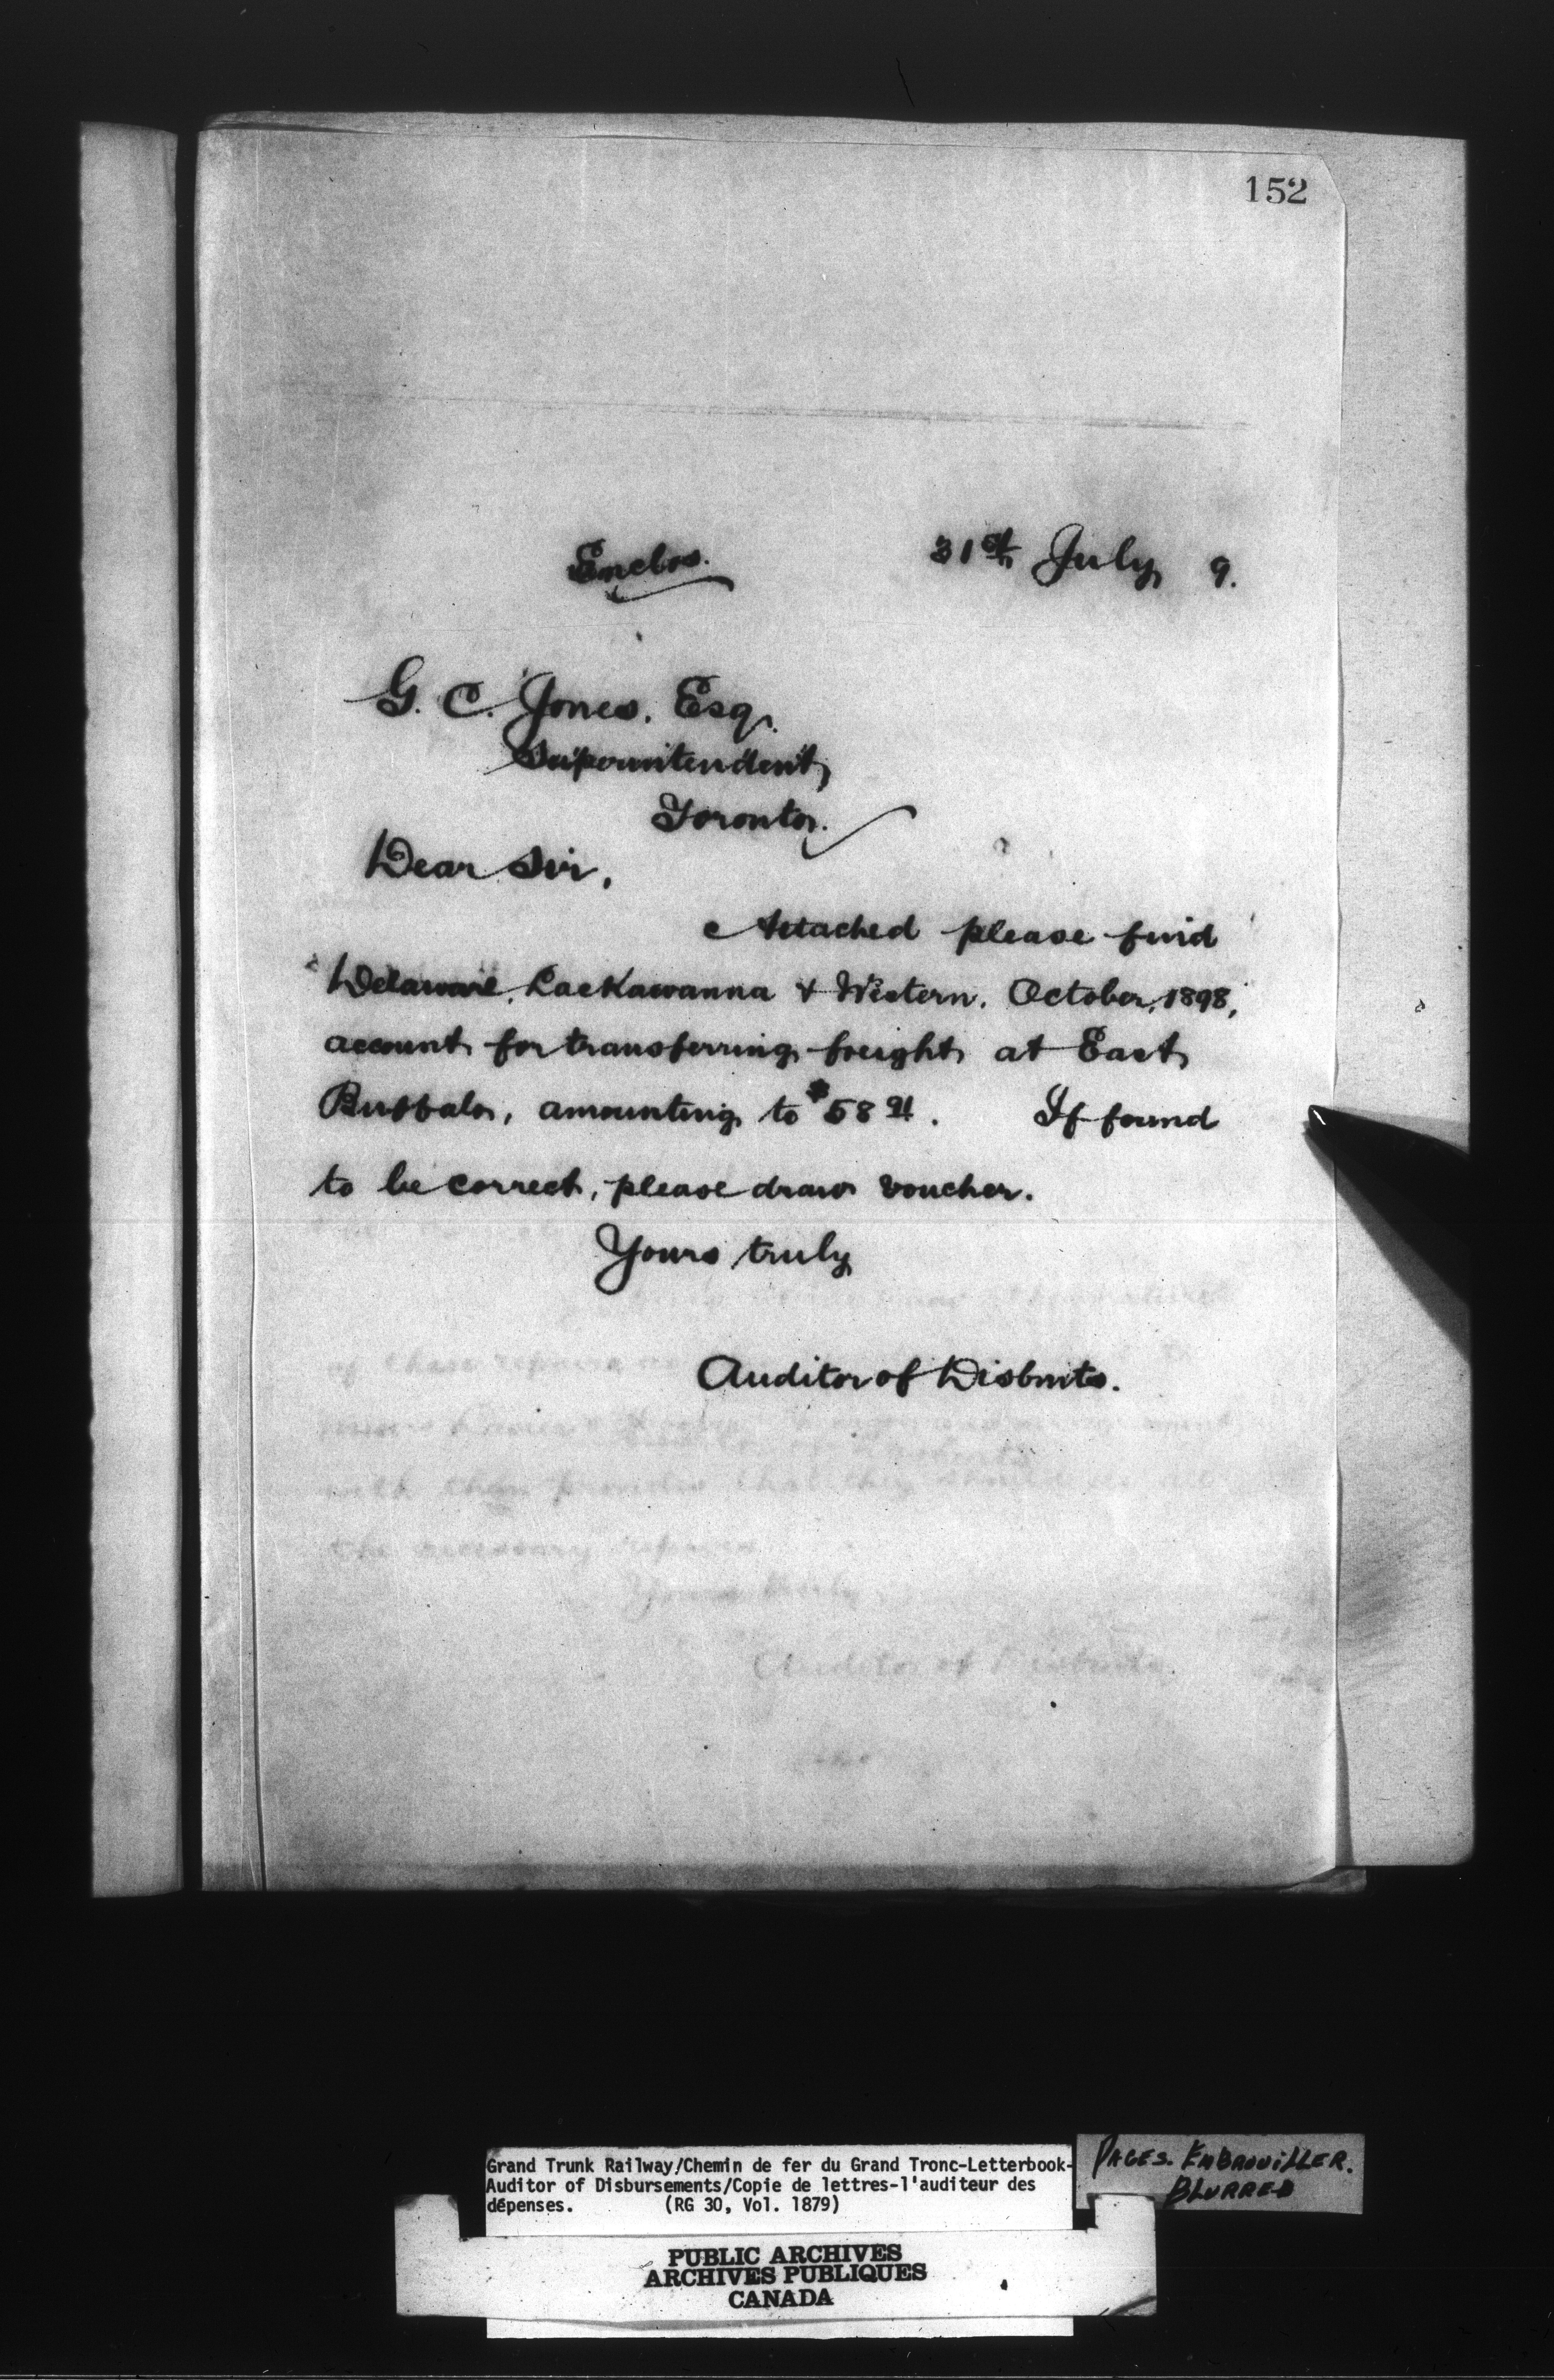 152
Enclos. 31st July 9.
G. C. Jones. Esq.
Superintendent,
Toronto.
Dear Sir,
Attached please find
Delaware, Lackawanna & Western, October, 1898,
account for transferring freight at East
Buffalo, amounting to $58 91. If found
to be correct, please draw voucher.
Yours truly
Auditor of Disbmts.
of these repairs
with them provides that they should do all
the necessary repairs
Yours truly
Auditor of Disbmts.
Grand Trunk Railway/Chemin de fer du Grand Tronc-Letterbook-
Auditor of Disbursements/Copie de lettres-l'auditeur des
dépenses. (RG 30, Vol. 1879)
PAGES. EMBROUILLER.
BLURRED
PUBLIC ARCHIVES
ARCHIVES PUBLIQUES
CANADA